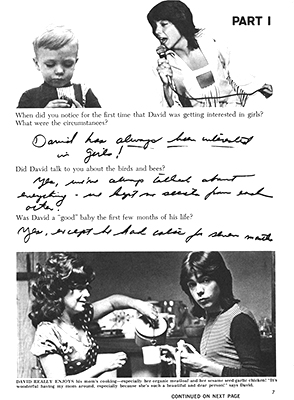 PART I
When did you notice for the first time that David was getting interested in girls?
What were the circumstances?
David has always been interested
in girls!
Did David talk to you about the birds and bees?
Yes, we've always talked about
everything - we kept no secrets from each
other!
Was David a "good" baby the first few months of his life?
Yes, except he had colic for seven months
DAVID REALLY ENJOYS his mom's cooking—especially her organic meatloaf and her sesame seed-garlic chicken! "It's
wonderful having my mom around, especially because she's such a beautiful and dear person!" says David.
CONTINUED ON NEXT PAGE
7